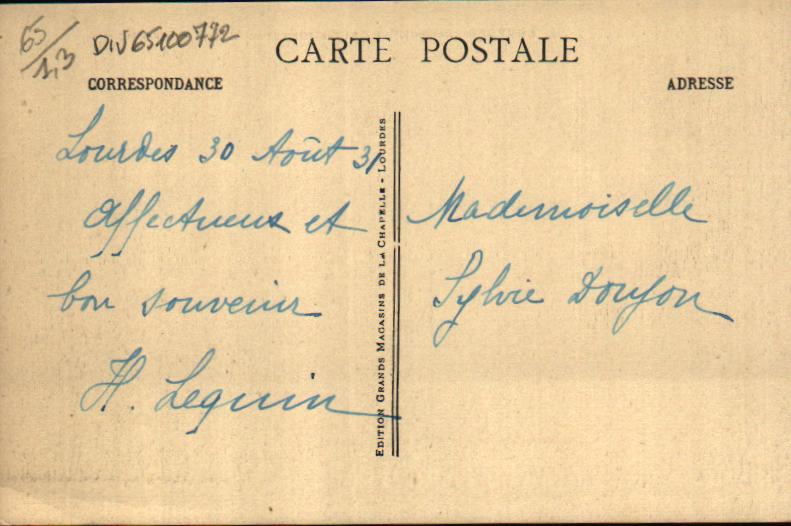 65/1,3
DIV65100772
CARTE POSTALE
CORRESPONDANCE
ADRESSE
Lourdes 30 Août 31
Affectueux et
bon souvenir
H. Lequin
EDITION GRANDS MAGASINS DE LA CHAPELLE - LOURDES
Mademoiselle
Sylvie